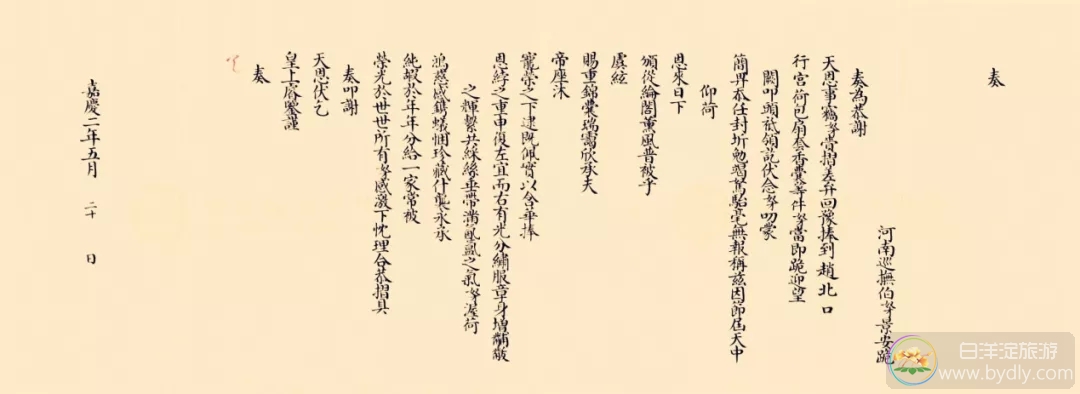 奏
河南巡撫伯奴才景安跪
奏為恭謝
天恩事竊奴才賫摺差弁回豫捧到趙北口
行宮荷包扇套香囊等件奴才當即跪迎望
闕叩頭祗領訖伏念奴才叨蒙
簡畀忝任封圻勉竭駑駘毫無報稱茲因節屆天中
仰荷
恩來日下
頒從綸閣薰風普被乎
虞絃
賜重錦囊瑞靄欣承夫
帝座沐
寵榮之下逮既佩實以含華捧
恩綍之重申復左宜而右有光分繡服章身增黼黻
之輝繫共綵絲垂帶滿氤氳之氣奴才渥荷
鴻慈感鐫蟻悃珍藏什襲永承
純嘏於年年分給一家常被
榮光於世世所有奴才感激下忱理合恭摺具
奏叩謝
天恩伏乞
皇上睿鑒謹
奏
嘉慶二年五月 二十 日
白洋淀旅游
www.bydly.com